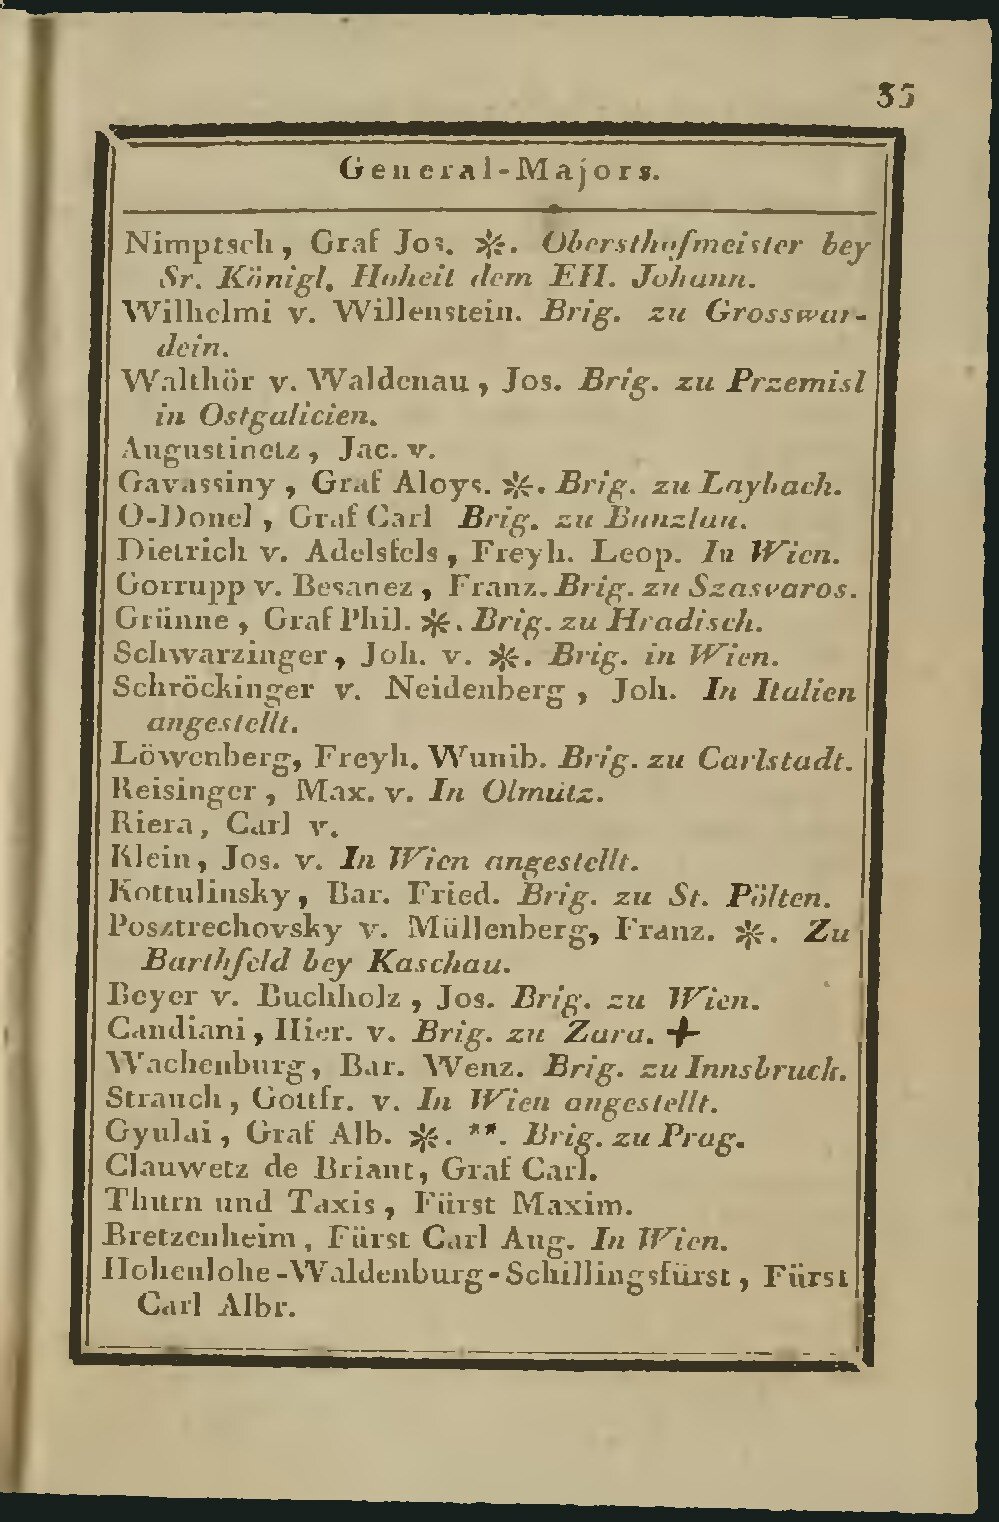 35
General-Majors.
Nimptsch, Graf Jos. ✻. Obersthofmeister bey
Sr. Königl. Hoheit dem EH. Johann.
Wilhelmi v. Willenstein. Brig. zu Grosswar-
dein.
Walthör v. Waldenau, Jos. Brig. zu Przemisl
in Ostgalicien.
Augustinetz, Jac. v.
Gavassiny, Graf Aloys. ✻. Brig. zu Laybach.
O-Donel, Graf Carl Brig. zu Bunzlau.
Dietrich v. Adelsfels, Freyh. Leop. In Wien.
Gorrupp v. Besanez, Franz. Brig. zu Szasvaros.
Grünne, Graf Phil. ✻. Brig. zu Hradisch.
Schwarzinger, Joh. v. ✻. Brig. in Wien.
Schröckinger v. Neidenberg, Joh. In Italien
angestellt.
Löwenberg, Freyh. Wunib. Brig. zu Carlstadt.
Reisinger, Max. v. In Olmütz.
Riera, Carl v.
Klein, Jos. v. In Wien angestellt.
Kottulinsky, Bar. Fried. Brig. zu St. Pölten.
Posztrechovsky v. Müllenberg, Franz. ✻. Zu
Barthfeld bey Kaschau.
Beyer v. Buchholz, Jos. Brig. zu Wien.
Candiani, Hier. v. Brig. zu Zara. +
Wachenburg, Bar. Wenz. Brig. zu Innsbruck.
Strauch, Gottfr. v. In Wien angestellt.
Gyulai, Graf Alb. ✻. **. Brig. zu Prag.
Clauwetz de Briant, Graf Carl.
Thurn und Taxis, Fürst Maxim.
Bretzenheim, Fürst Carl Aug. In Wien.
Hohenlohe-Waldenburg-Schillingsfürst, Fürst
Carl Albr.